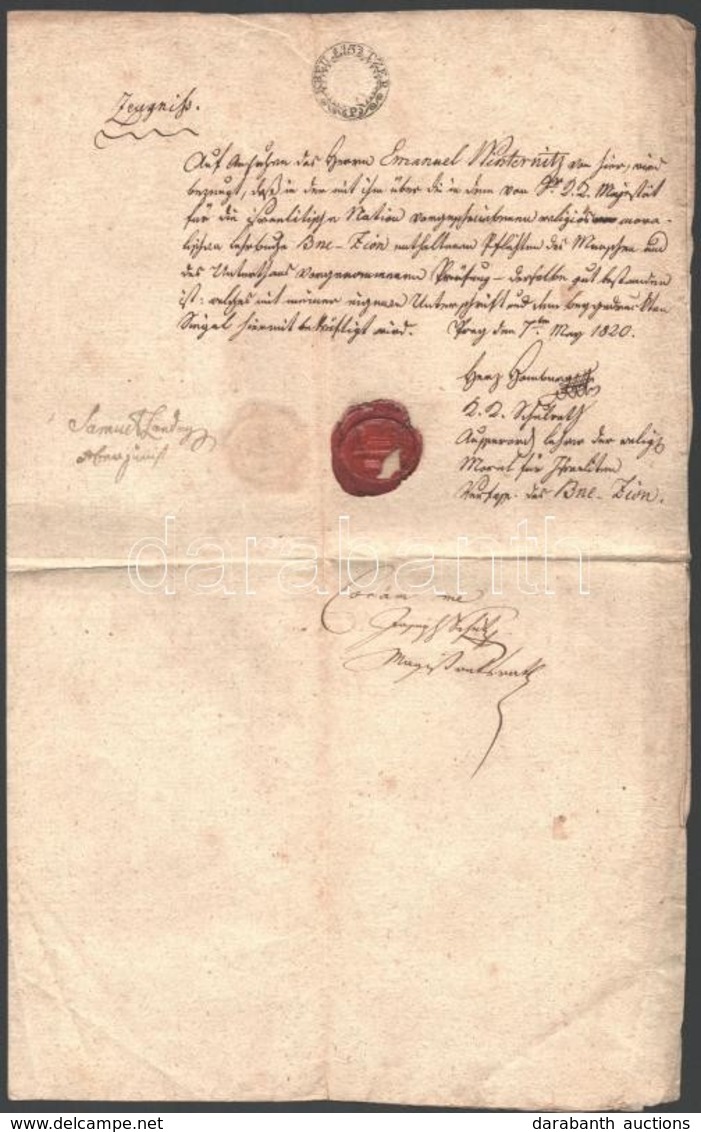 Zeugniß.
Auf Ansuchen des Herrn Emanuel Winternitz von hier, wird
bezeugt, daß in der mit ihm über die in dem von Sr. K. K. Majestät
für die israelitische Nation vorgeschriebenen religiös mora-
lischen Lehrbuche Bne-Zion enthaltenen Pflichten des Menschen und
des Unterthans vorgenommenen Prüfung – derselbe gut bestanden
ist: welches mit meiner eigenen Unterschrift und dem beygedruckten
Siegel hiermit bekräftigt wird. Prag den 7ten May 1820.
Herz Homburg
K. K. Schulrath
Lehrer der relig
Moral für Israeliten
Verfasser des Bne-Zion.
Samuel Landau
Oberjurist
Coram me
Joseph
Magistratsrath
darabanth
darabanth auctions